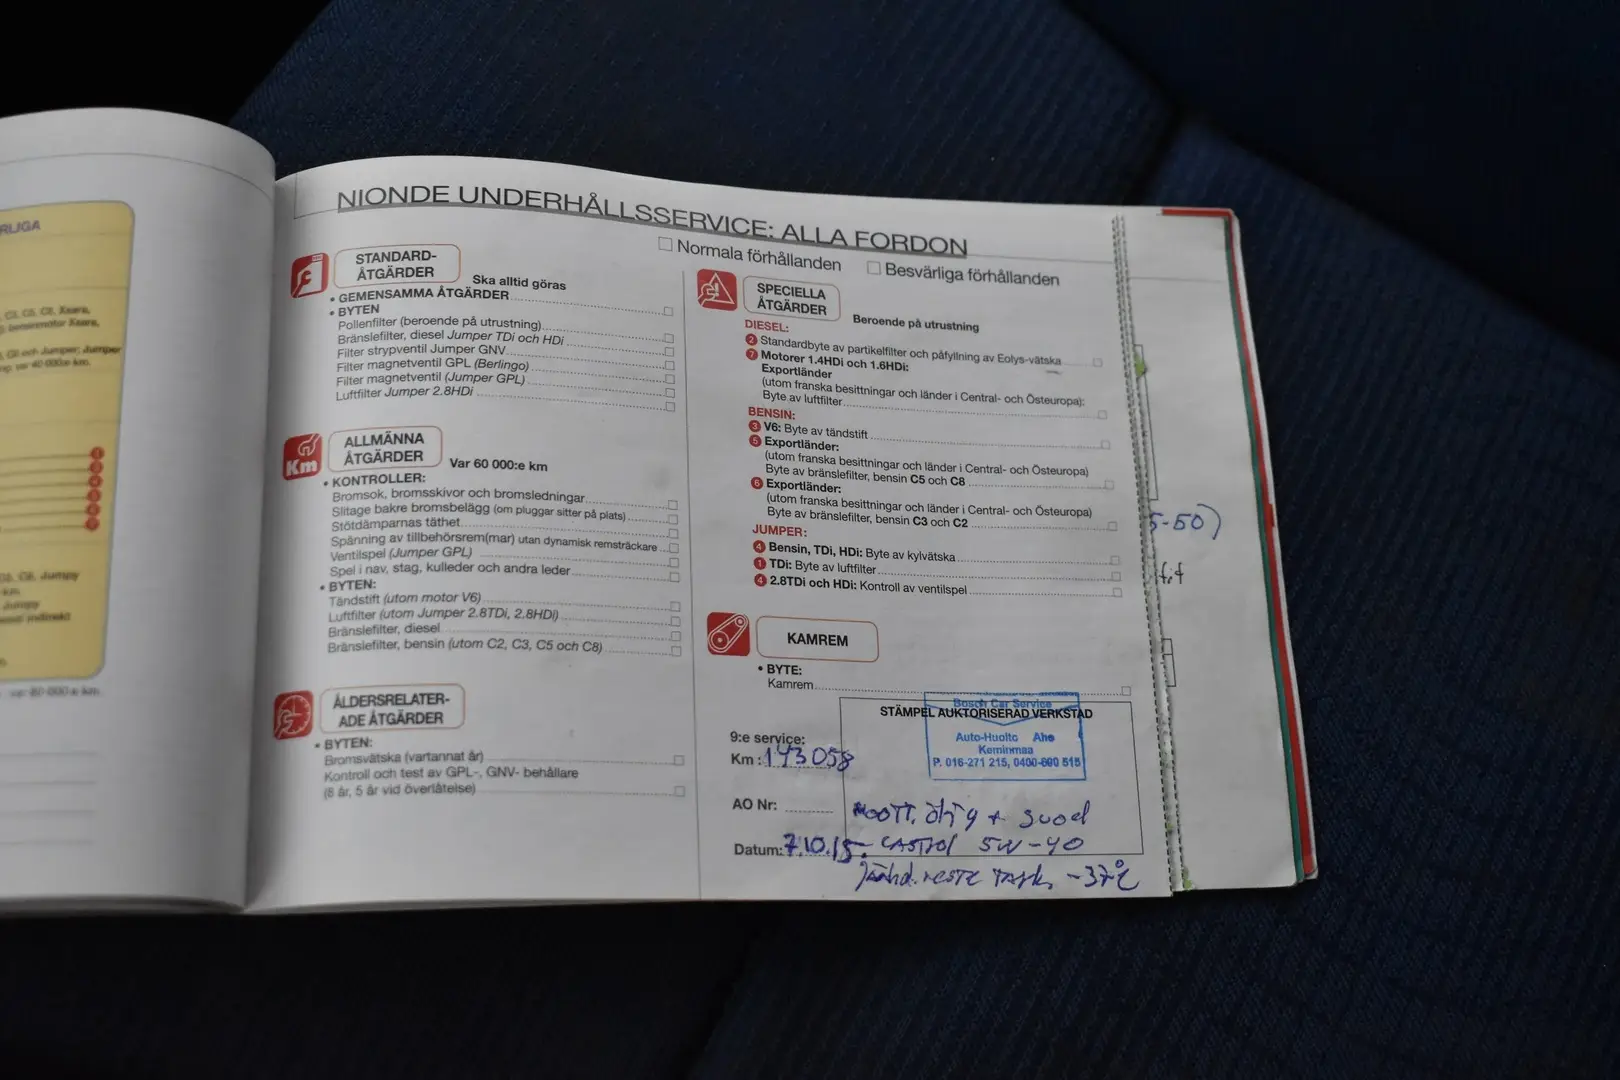 RLIGA
C3, C5, C8, Xsara,
bensinmotor Xsara,
C8 och Jumper; Jumper
var 40 000:e km.
C8, Jumpy
km.
Jumpy
indirekt
var 60 000:e km.
NIONDE UNDERHÅLLSSERVICE: ALLA FORDON
Normala förhållanden
Besvärliga förhållanden
STANDARD-
ÅTGÄRDER
Ska alltid göras
• GEMENSAMMA ÅTGÄRDER
• BYTEN
Pollenfilter (beroende på utrustning)
Bränslefilter, diesel Jumper TDi och HDi
Filter strypventil Jumper GNV
Filter magnetventil GPL (Berlingo)
Filter magnetventil (Jumper GPL)
Luftfilter Jumper 2.8HDi
Km
ALLMÄNNA
ÅTGÄRDER
Var 60 000:e km
• KONTROLLER:
Bromsok, bromsskivor och bromsledningar
Slitage bakre bromsbelägg (om pluggar sitter på plats)
Stötdämparnas täthet
Spänning av tillbehörsrem(mar) utan dynamisk remsträckare
Ventilspel (Jumper GPL)
Spel i nav, stag, kulleder och andra leder
• BYTEN:
Tändstift (utom motor V6)
Luftfilter (utom Jumper 2.8TDi, 2.8HDi)
Bränslefilter, diesel
Bränslefilter, bensin (utom C2, C3, C5 och C8)
ÅLDERSRELATER-
ADE ÅTGÄRDER
• BYTEN:
Bromsvätska (vartannat år)
Kontroll och test av GPL-, GNV- behållare
(8 år, 5 år vid överlåtelse)
SPECIELLA
ÅTGÄRDER
Beroende på utrustning
DIESEL:
2 Standardbyte av partikelfilter och påfyllning av Eolys-vätska
7 Motorer 1.4HDi och 1.6HDi:
Exportländer
(utom franska besittningar och länder i Central- och Östeuropa):
Byte av luftfilter
BENSIN:
3 V6: Byte av tändstift
5 Exportländer:
(utom franska besittningar och länder i Central- och Östeuropa)
Byte av bränslefilter, bensin C5 och C8
6 Exportländer:
(utom franska besittningar och länder i Central- och Östeuropa)
Byte av bränslefilter, bensin C3 och C2
JUMPER:
4 Bensin, TDi, HDi: Byte av kylvätska
1 TDi: Byte av luftfilter
4 2.8TDi och HDi: Kontroll av ventilspel
KAMREM
• BYTE:
Kamrem
STÄMPEL AUKTORISERAD VERKSTAD
Bosch Car Service
Auto-Huolto Aho
Keminmaa
P. 016-271 215, 0400-690 515
9:e service:
Km: 143058
AO Nr:
Moott. öljy + suod
Datum: 7.10.15
CASTROL 5W-40
Jäähd. neste -37°C
5-50)